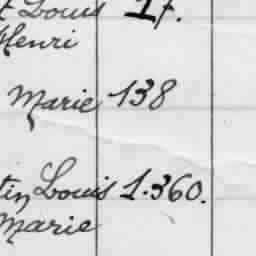 Louis 17.
Henri
Marie 138
tin Louis 1.360.
Marie